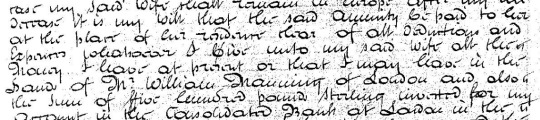 case my said Wife shall remain in Europe after my
decease It is my Will that the said Annuity be paid to her
at the place of her residence clear of all deductions and
Expences whatsoever I Give unto my said wife all the
Money I leave at present or that I may leave in the
hands of Mr William Manning of London and also
the sum of five hundred pounds sterling invested for my
Account in the Consolidated Bank at London in the